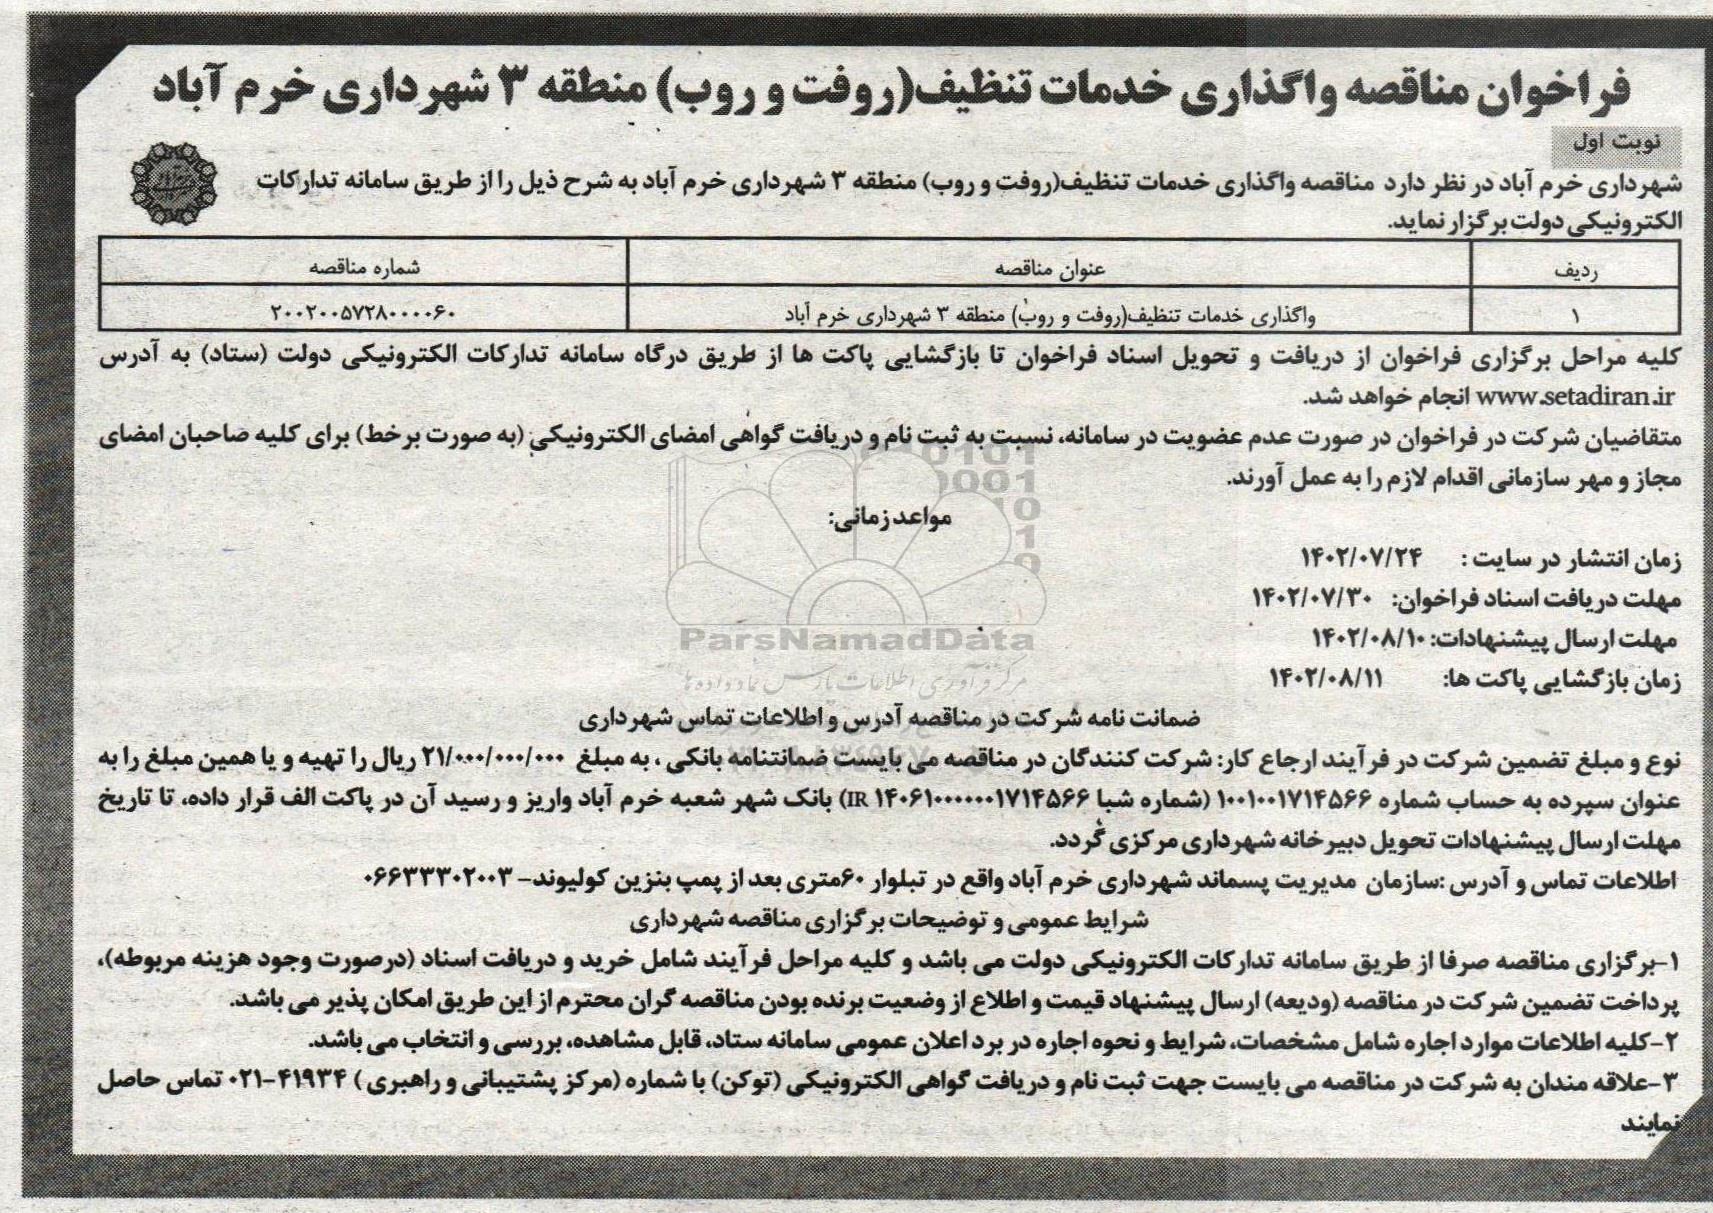 فراخوان مناقصه واگذاری خدمات تنظیف(روفت و روب) منطقه ۳ شهرداری خرم آباد
نوبت اول
شهرداری خرم آباد در نظر دارد مناقصه واگذاری خدمات تنظیف(روفت و روب) منطقه ۳ شهرداری خرم آباد به شرح ذیل را از طریق سامانه تدارکات
الکترونیکی دولت برگزار نماید.
ردیف عنوان مناقصه شماره مناقصه
۱ واگذاری خدمات تنظیف(روفت و روب) منطقه ۳ شهرداری خرم آباد ۲۰۰۲۰۰۵۷۲۸۰۰۰۰۶۰
کلیه مراحل برگزاری فراخوان از دریافت و تحویل اسناد فراخوان تا بازگشایی پاکت ها از طریق درگاه سامانه تدارکات الکترونیکی دولت (ستاد) به آدرس
www.setadiran.ir انجام خواهد شد.
متقاضیان شرکت در فراخوان در صورت عدم عضویت در سامانه، نسبت به ثبت نام و دریافت گواهی امضای الکترونیکی (به صورت برخط) برای کلیه صاحبان امضای
مجاز و مهر سازمانی اقدام لازم را به عمل آورند.
مواعد زمانی:
زمان انتشار در سایت : ۱۴۰۲/۰۷/۲۴
مهلت دریافت اسناد فراخوان: ۱۴۰۲/۰۷/۳۰
مهلت ارسال پیشنهادات: ۱۴۰۲/۰۸/۱۰
ParsNamadData
زمان بازگشایی پاکت ها: ۱۴۰۲/۰۸/۱۱
مرکز فرآوری اطلاعات پارس نماد داده ها
ضمانت نامه شرکت در مناقصه آدرس و اطلاعات تماس شهرداری
نوع و مبلغ تضمین شرکت در فرآیند ارجاع کار: شرکت کنندگان در مناقصه می بایست ضمانتنامه بانکی ، به مبلغ ۲۱/۰۰۰/۰۰۰/۰۰۰ ریال را تهیه و یا همین مبلغ را به
عنوان سپرده به حساب شماره ۱۰۰۱۰۰۱۷۱۴۵۶۶ (شماره شبا IR ۱۴۰۶۱۰۰۰۰۰۰۰۱۷۱۴۵۶۶) بانک شهر شعبه خرم آباد واریز و رسید آن در پاکت الف قرار داده، تا تاریخ
مهلت ارسال پیشنهادات تحویل دبیرخانه شهرداری مرکزی گردد.
اطلاعات تماس و آدرس :سازمان مدیریت پسماند شهرداری خرم آباد واقع در تبلوار ۶۰متری بعد از پمپ بنزین کولیوند- ۰۶۶۳۳۳۰۲۰۰۳
شرایط عمومی و توضیحات برگزاری مناقصه شهرداری
۱-برگزاری مناقصه صرفا از طریق سامانه تدارکات الکترونیکی دولت می باشد و کلیه مراحل فرآیند شامل خرید و دریافت اسناد (درصورت وجود هزینه مربوطه)،
پرداخت تضمین شرکت در مناقصه (ودیعه) ارسال پیشنهاد قیمت و اطلاع از وضعیت برنده بودن مناقصه گران محترم از این طریق امکان پذیر می باشد.
۲-کلیه اطلاعات موارد اجاره شامل مشخصات، شرایط و نحوه اجاره در برد اعلان عمومی سامانه ستاد، قابل مشاهده، بررسی و انتخاب می باشد.
۳-علاقه مندان به شرکت در مناقصه می بایست جهت ثبت نام و دریافت گواهی الکترونیکی (توکن) با شماره (مرکز پشتیبانی و راهبری ) ۴۱۹۳۴-۰۲۱ تماس حاصل
نمایند